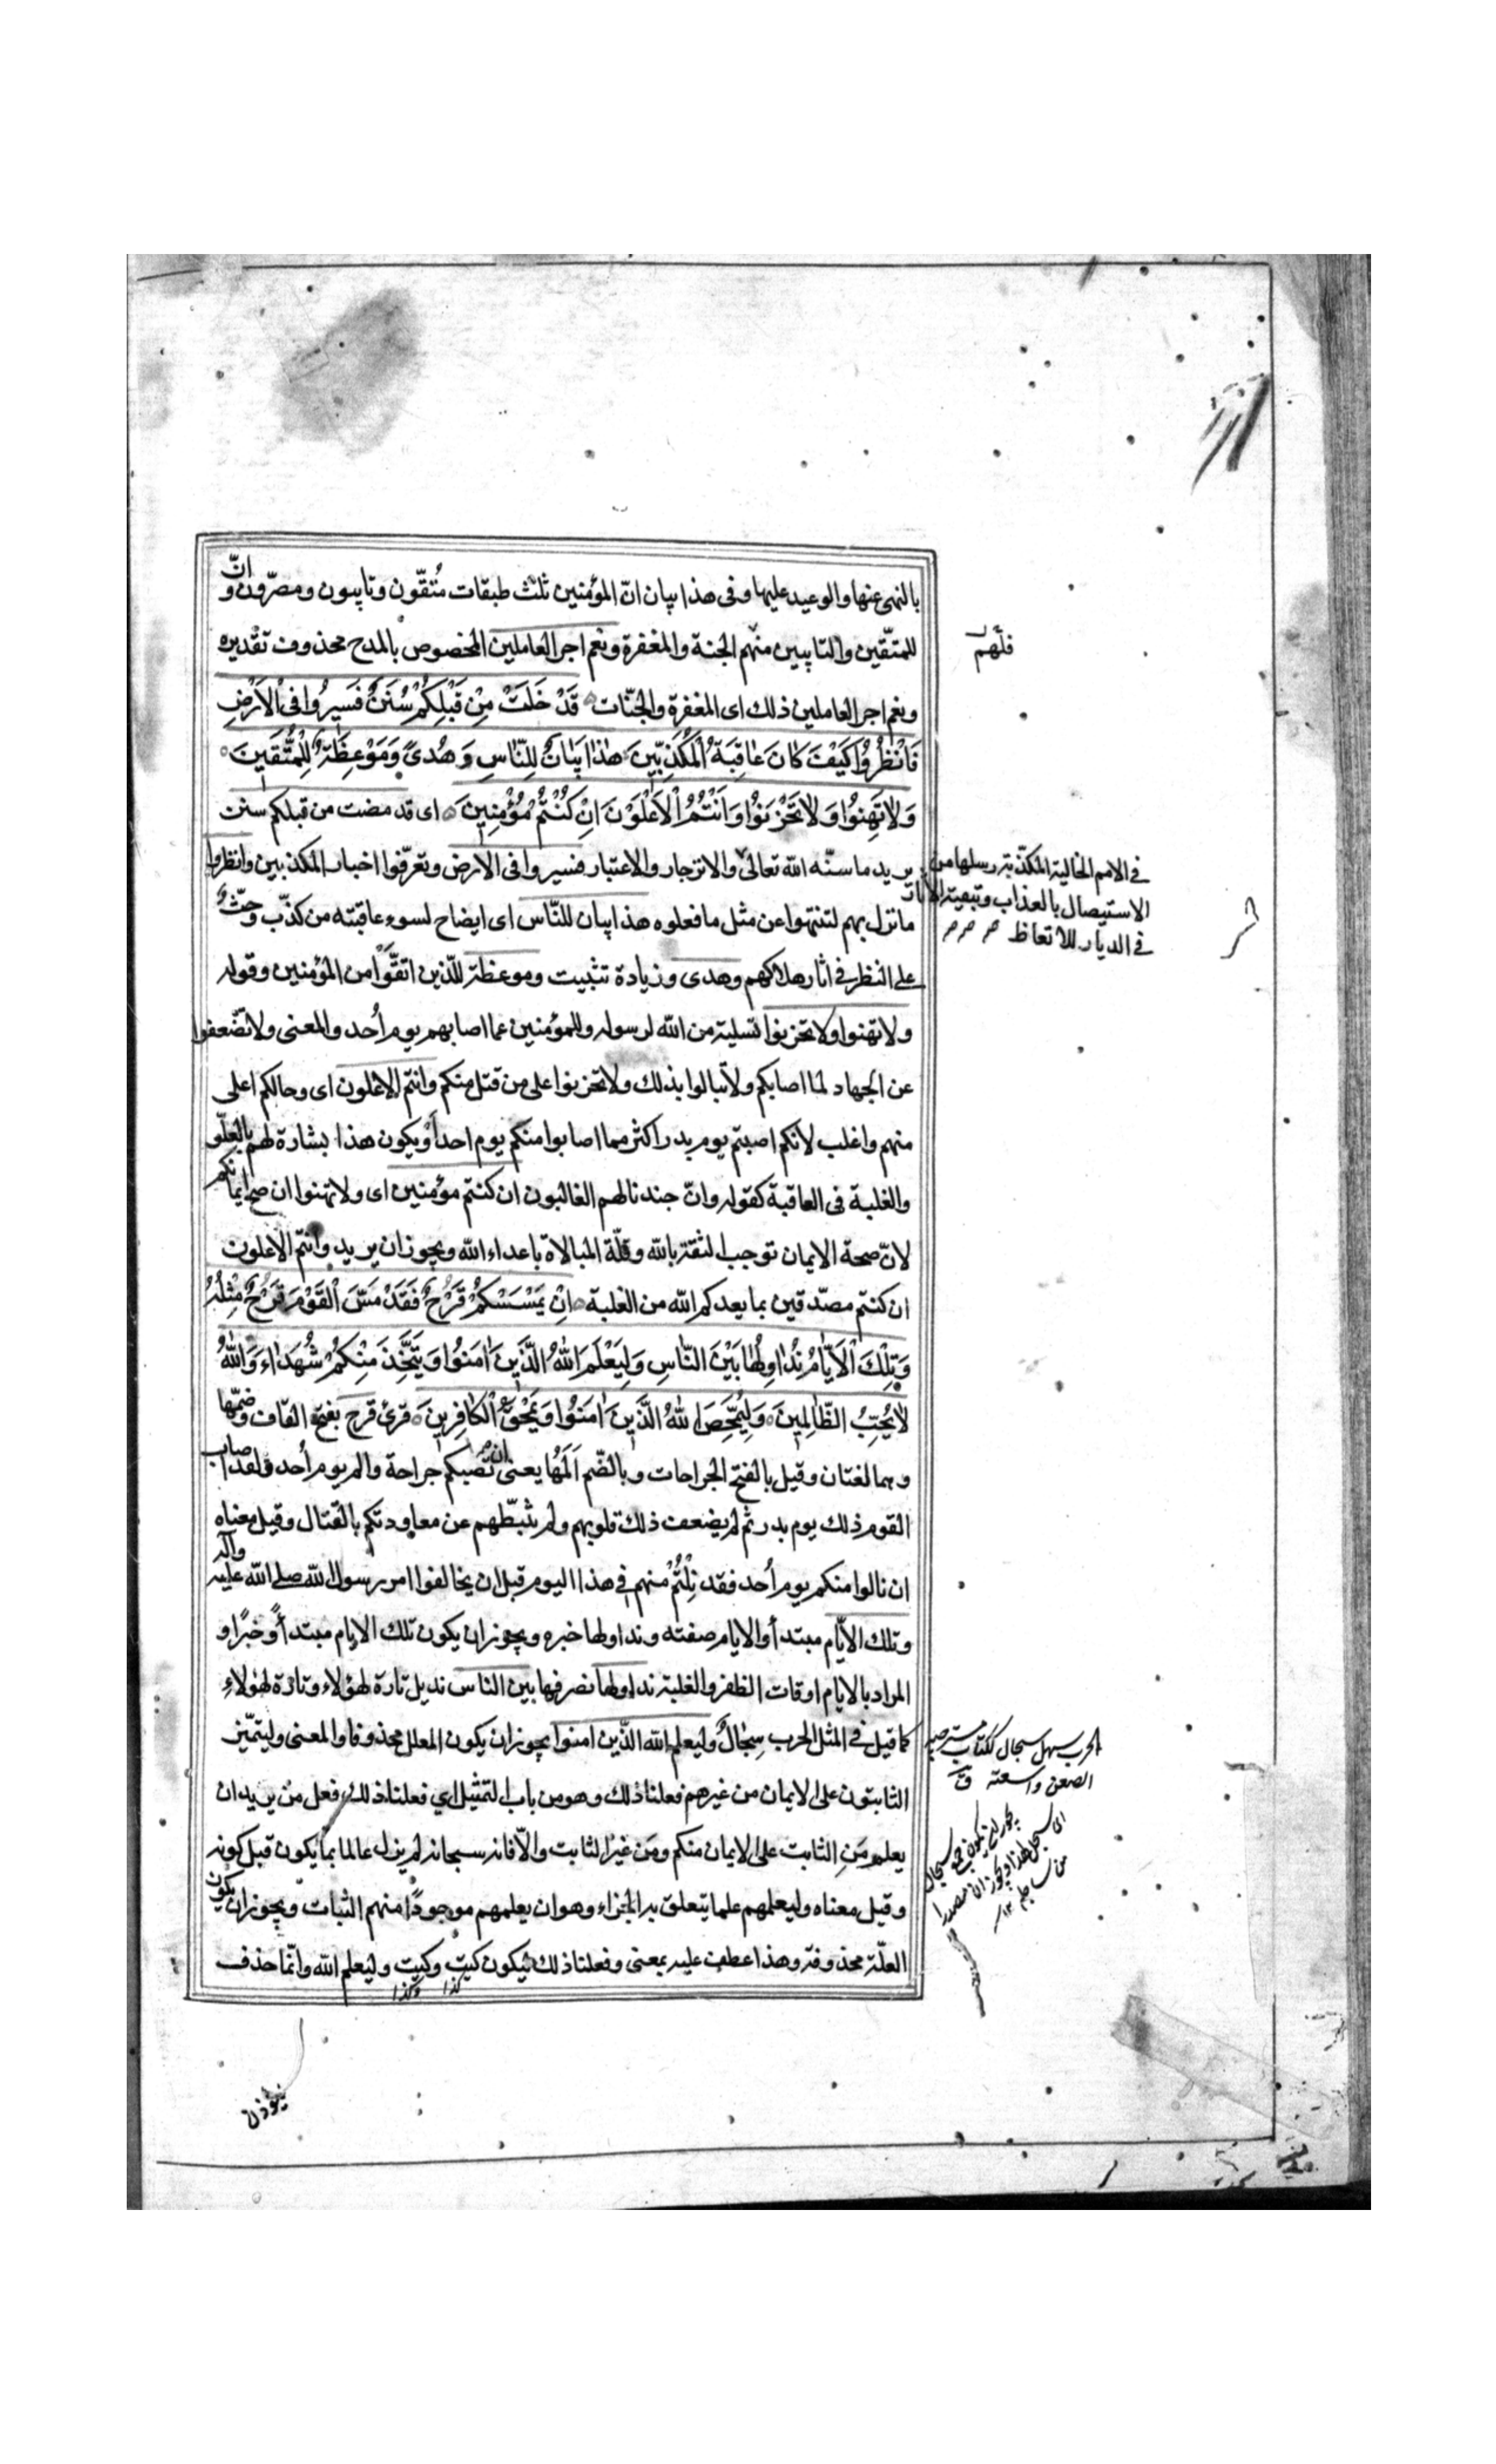 بالنهى عنها والوعيد عليها وفى هذا بيان انّ المؤمنين ثلث طبقات مُتّقون وتايبون ومصرّون وانّ
للمتّقين والتايبين منهم الجنة والمغفرة ونعم اجر العاملين المخصوص بالمدح محذوف تقديره
ونعم اجر العاملين ذلك اى المغفرة والجنّات قَدْ خَلَتْ مِنْ قَبْلِكُمْ سُنَنٌ فَسِيرُوا فِى الْاَرْضِ
فَانْظُرُوا كَيْفَ كَانَ عَاقِبَةُ الْمُكَذِّبِينَ هٰذَا بَيَانٌ لِلنَّاسِ وَهُدىً وَمَوْعِظَةٌ لِلْمُتَّقِينَ
وَلَا تَهِنُوا وَلَا تَحْزَنُوا وَاَنْتُمُ الْاَعْلَوْنَ اِنْ كُنْتُمْ مُؤْمِنِينَ اى قد مضت من قبلكم سنن
يريد ما سنّه الله تعالى والانزجار والاعتبار فسيروا فى الارض وتعرّفوا اخبار المكذبين وانظروا
ما نزل بهم لتنتهوا عن مثل ما فعلوه هذا بيان للنّاس اى ايضاح لسوء عاقبته من كذّب وحثّ
على النظر فى اثار هلاكهم وهدى وزيادة تثبيت وموعظة للّذين اتقَّوا من المؤمنين وقوله
ولا تهنوا ولا تحزنوا تسلية من الله لرسوله وللمؤمنين عما اصابهم يوم اُحد والمعنى ولا تضعفوا
عن الجهاد لما اصابكم ولا تبالوا بذلك ولا تحزنوا على من قتل منكم وانتم الاعلون اى وحالكم اعلى
منهم واغلب لانكم اصبتم يوم بدر اكثر مما اصابوا منكم يوم احد اَو يكون هذا بشارة لهم بالعلّو
والغلبة فى العاقبة كقوله وانّ جندنا لهم الغالبون ان كنتم مؤمنين اى ولا تهنوا ان صح ايمانكم
لانّ صحة الايمان توجب الثقة بالله وقلّة المبالاة باعداء الله ويجوز ان يريد وانتم الاعلون
ان كنتم مصدّقين بما يعدكم الله من الغلبة اِنْ يَمْسَسْكُمْ قَرْحٌ فَقَدْ مَسَّ الْقَوْمَ قَرْحٌ مِثْلُهُ
وَتِلْكَ الْاَيَّامُ نُدَاوِلُهَا بَيْنَ النَّاسِ وَلِيَعْلَمَ اللهُ الَّذِينَ اٰمَنُوا وَيَتَّخِذَ مِنْكُمْ شُهَدَاءَ وَاللهُ
لَا يُحِبُّ الظَّالِمِينَ وَلِيُمَحِّصَ اللهُ الَّذِينَ اٰمَنُوا وَيَمْحَقَ الْكَافِرِينَ قرئ قرح بفتح القاف وضمّها
وهما لغتان وقيل بالفتح الجراحات وبالضّم اَلَمُها يعنى ان تصبكم جراحة والم يوم اُحد فلقد اصاب
القوم ذلك يوم بدر ثم لم يضعف ذلك قلوبهم ولم يثبّطهم عن معاودتكم بالقتال وقيل معناه
ان نالوا منكم يوم اُحد فقد نِلْتُمْ منهم فى هذا اليوم قبل ان يخالفوا امر رسول الله صلى الله عليه وآله
وتلك الايّام مبتدأ والايام صفته ونداولها خبره ويجوز ان يكون تلك الايام مبتدأً وخبرًا و
المراد بالايام اوقات الظفر والغلبة نداولها نصرفها بين الناس نديل تارة لهؤلاء وتارة لهؤلاءِ
كما قيل فى المثل الحرب سِجَالٌ وليعلم الله الّذين امنوا يجوز ان يكون المعلل محذوفا والمعنى وليتميّز
الثابتون على الايمان من غيرهم فعلنا ذلك وهو من باب التمثيل اى فعلنا ذلك فعل من يريد ان
يعلم مَنِ الثابت على الايمان منكم ومَن غير الثابت والّا فانه سبحانه لم يزل عالما بما يكون قبل كونه
وقيل معناه وليعلمهم علما يتعلق به الجزاء وهو ان يعلمهم موجودًا منهم الثبات ويجوز ان يكون
العلّة محذوفة وهذا عطف عليه بمعنى وفعلنا ذلك ليكون كيت وكيت وليعلم الله وانّما حذف
كذا وكذا
فلهم
فى الامم الخالية المكذّبة رسلها من
الاستيصال بالعذاب وتبقية الاثار
فى الديار للاتعاظ
الحرب سجال ككتاب